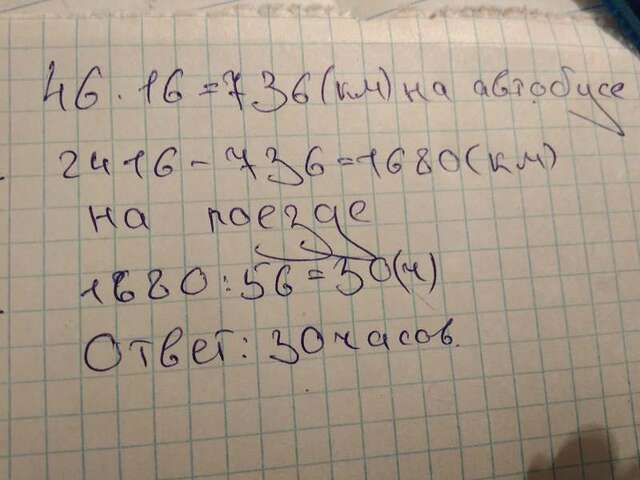 46 . 16 = 736 (км) на автобусе
2416 - 736 = 1680 (км)
на поезде
1680 : 56 = 30 (ч)
Ответ : 30 часов.